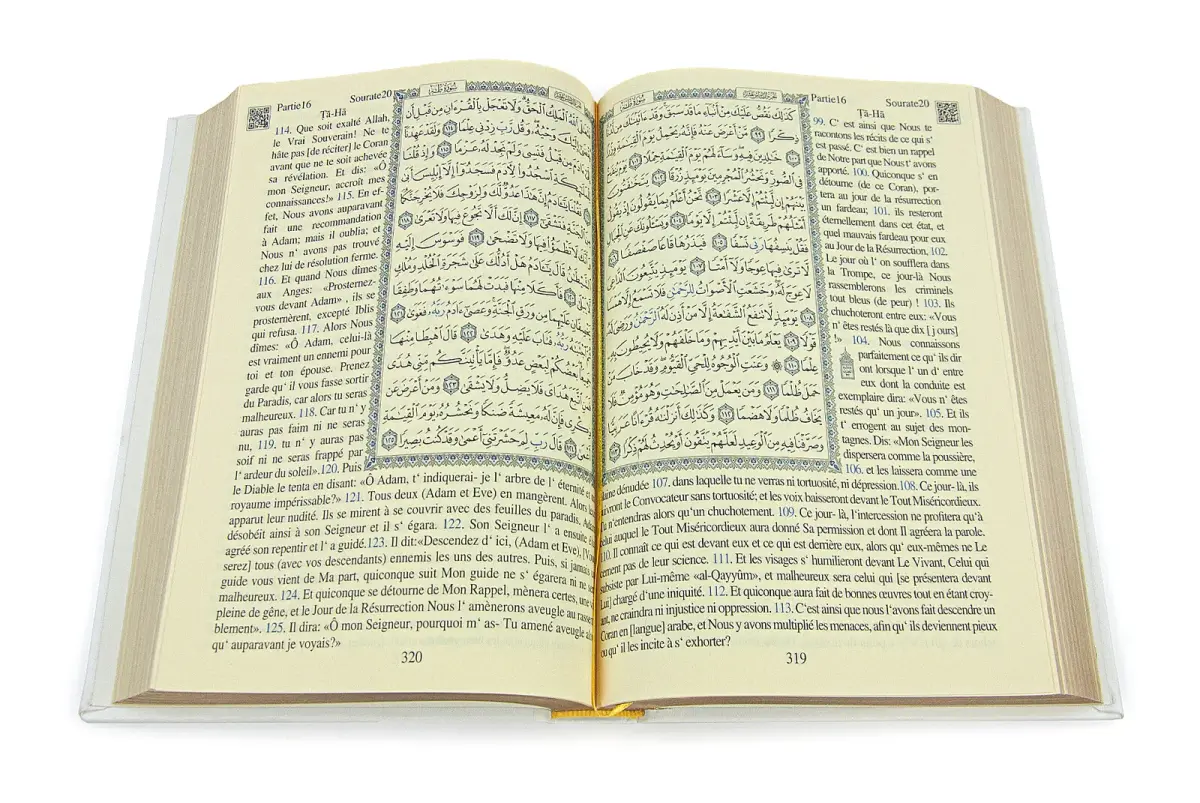 Partie16 Sourate20
Ṭā-Hā
99. C' est ainsi que Nous te
racontons les récits de ce qui s'
est passé. C' est bien un rappel
de Notre part que Nous t' avons
apporté. 100. Quiconque s' en
détourne (de ce Coran), por-
tera au jour de la résurrection
un fardeau; 101. ils resteront
éternellement dans cet état, et
quel mauvais fardeau pour eux
au Jour de la Résurrection, 102.
Le jour où l' on soufflera dans
la Trompe, ce jour-là Nous
rassemblerons les criminels
tout bleus (de peur) ! 103. Ils
chuchoteront entre eux: «Vous
n' êtes restés là que dix [j ours]
!» 104. Nous connaissons
parfaitement ce qu' ils dir
ont lorsque l' un d' entre
eux dont la conduite est
exemplaire dira: «Vous n' êtes
restés qu' un jour». 105. Et ils
t' errogent au sujet des mon-
tagnes. Dis: «Mon Seigneur les
dispersera comme la poussière,
106. et les laissera comme une
plaine dénudée 107. dans laquelle tu ne verras ni tortuosité, ni dépression.108. Ce jour- là, ils
suivront le Convocateur sans tortuosité; et les voix baisseront devant le Tout Miséricordieux.
Tu n'entendras alors qu'un chuchotement. 109. Ce jour- là, l'intercession ne profitera qu'à
celui auquel le Tout Miséricordieux aura donné Sa permission et dont Il agréera la parole.
110. Il connaît ce qui est devant eux et ce qui est derrière eux, alors qu' eux-mêmes ne Le
cernent pas de leur science. 111. Et les visages s' humilieront devant Le Vivant, Celui qui
subsiste par Lui-même «al-Qayyûm», et malheureux sera celui qui [se présentera devant
Lui] chargé d'une iniquité. 112. Et quiconque aura fait de bonnes œuvres tout en étant croy-
ant, ne craindra ni injustice ni oppression. 113. C'est ainsi que nous l'avons fait descendre un
Coran en [langue] arabe, et Nous y avons multiplié les menaces, afin qu' ils deviennent pieux
ou qu' il les incite à s' exhorter?
319
كَذَٰلِكَ نَقُصُّ عَلَيْكَ مِنْ أَنۢبَآءِ مَا قَدْ سَبَقَ ۚ وَقَدْ ءَاتَيْنَٰكَ
ذِكْرًا ٩٩ مَّنْ أَعْرَضَ عَنْهُ فَإِنَّهُۥ يَحْمِلُ يَوْمَ ٱلْقِيَٰمَةِ
١٠٠ خَٰلِدِينَ فِيهِ ۖ وَسَآءَ لَهُمْ يَوْمَ ٱلْقِيَٰمَةِ حِمْلًا ١٠١
فِى ٱلصُّورِ ۚ وَنَحْشُرُ ٱلْمُجْرِمِينَ يَوْمَئِذٍ زُرْقًا ١٠٢ يَتَخَٰفَتُونَ
بَيْنَهُمْ إِن لَّبِثْتُمْ إِلَّا عَشْرًا ١٠٣ نَّحْنُ أَعْلَمُ بِمَا يَقُولُونَ إِذْ يَقُولُ
أَمْثَلُهُمْ طَرِيقَةً إِن لَّبِثْتُمْ إِلَّا يَوْمًا ١٠٤ وَيَسْـَٔلُونَكَ عَنِ ٱلْجِبَالِ
فَقُلْ يَنسِفُهَا رَبِّى نَسْفًا ١٠٥ فَيَذَرُهَا قَاعًا صَفْصَفًا ١٠٦
لَّا تَرَىٰ فِيهَا عِوَجًا وَلَآ أَمْتًا ١٠٧ يَوْمَئِذٍ يَتَّبِعُونَ ٱلدَّاعِىَ
لَا عِوَجَ لَهُۥ ۖ وَخَشَعَتِ ٱلْأَصْوَاتُ لِلرَّحْمَٰنِ فَلَا تَسْمَعُ إِلَّا هَمْسًا
١٠٨ يَوْمَئِذٍ لَّا تَنفَعُ ٱلشَّفَٰعَةُ إِلَّا مَنْ أَذِنَ لَهُ ٱلرَّحْمَٰنُ وَرَضِىَ لَهُۥ
قَوْلًا ١٠٩ يَعْلَمُ مَا بَيْنَ أَيْدِيهِمْ وَمَا خَلْفَهُمْ وَلَا يُحِيطُونَ بِهِۦ
عِلْمًا ١١٠ ۞ وَعَنَتِ ٱلْوُجُوهُ لِلْحَىِّ ٱلْقَيُّومِ ۖ وَقَدْ خَابَ مَنْ
حَمَلَ ظُلْمًا ١١١ وَمَن يَعْمَلْ مِنَ ٱلصَّٰلِحَٰتِ وَهُوَ مُؤْمِنٌ فَلَا
يَخَافُ ظُلْمًا وَلَا هَضْمًا ١١٢ وَكَذَٰلِكَ أَنزَلْنَٰهُ قُرْءَانًا عَرَبِيًّا
وَصَرَّفْنَا فِيهِ مِنَ ٱلْوَعِيدِ لَعَلَّهُمْ يَتَّقُونَ أَوْ يُحْدِثُ لَهُمْ ذِكْرًا ١١٣
Partie16 Sourate20
Ṭā-Hā
سُورَةُ طه
114. Que soit exalté Allah,
le Vrai Souverain! Ne te
hâte pas [de réciter] le Coran
avant que ne te soit achevée
sa révélation. Et dis: «Ô
mon Seigneur, accroît mes
connaissances!» 115. En ef-
fet, Nous avons auparavant
fait une recommandation
à Adam; mais il oublia; et
Nous n' avons pas trouvé
chez lui de résolution ferme.
116. Et quand Nous dîmes
aux Anges: «Prosternez-
vous devant Adam» , ils se
prosternèrent, excepté Iblis
qui refusa. 117. Alors Nous
dîmes: «Ô Adam, celui-là
est vraiment un ennemi pour
toi et ton épouse. Prenez
garde qu' il vous fasse sortir
du Paradis, car alors tu seras
malheureux. 118. Car tu n' y
auras pas faim ni ne seras
nu, 119. tu n' y auras pas
soif ni ne seras frappé par
l' ardeur du soleil».120. Puis
le Diable le tenta en disant: «Ô Adam, t' indiquerai- je l' arbre de l' éternité et
royaume impérissable?» 121. Tous deux (Adam et Eve) en mangèrent. Alors
apparut leur nudité. Ils se mirent à se couvrir avec des feuilles du paradis. Adam
désobéit ainsi à son Seigneur et il s' égara. 122. Son Seigneur l' a ensuite
agréé son repentir et l' a guidé.123. Il dit:«Descendez d' ici, (Adam et Eve),
serez] tous (avec vos descendants) ennemis les uns des autres. Puis, si jamais
guide vous vient de Ma part, quiconque suit Mon guide ne s' égarera ni ne
malheureux. 124. Et quiconque se détourne de Mon Rappel, mènera certes, une
pleine de gêne, et le Jour de la Résurrection Nous l' amènerons aveugle au
blement». 125. Il dira: «Ô mon Seigneur, pourquoi m' as- Tu amené aveugle
qu' auparavant je voyais?»
320
ٱللَّهُ ٱلْمَلِكُ ٱلْحَقُّ ۗ وَلَا تَعْجَلْ بِٱلْقُرْءَانِ مِن قَبْلِ أَن
إِلَيْكَ وَحْيُهُۥ ۖ وَقُل رَّبِّ زِدْنِى عِلْمًا ١١٤ وَلَقَدْ عَهِدْنَآ
مِن قَبْلُ فَنَسِىَ وَلَمْ نَجِدْ لَهُۥ عَزْمًا ١١٥ وَإِذْ قُلْنَا
ٱسْجُدُوا۟ لِءَادَمَ فَسَجَدُوٓا۟ إِلَّآ إِبْلِيسَ أَبَىٰ
فَقُلْنَا يَٰٓـَٔادَمُ إِنَّ هَٰذَا عَدُوٌّ لَّكَ وَلِزَوْجِكَ فَلَا يُخْرِجَنَّكُمَا
ٱلْجَنَّةِ فَتَشْقَىٰٓ ١١٧ إِنَّ لَكَ أَلَّا تَجُوعَ فِيهَا وَلَا تَعْرَىٰ ١١٨
لَا تَظْمَؤُا۟ فِيهَا وَلَا تَضْحَىٰ ١١٩ فَوَسْوَسَ إِلَيْهِ
ٱلشَّيْطَٰنُ قَالَ يَٰٓـَٔادَمُ هَلْ أَدُلُّكَ عَلَىٰ شَجَرَةِ ٱلْخُلْدِ وَمُلْكٍ
١٢٠ فَأَكَلَا مِنْهَا فَبَدَتْ لَهُمَا سَوْءَٰتُهُمَا وَطَفِقَا
يَخْصِفَانِ عَلَيْهِمَا مِن وَرَقِ ٱلْجَنَّةِ ۚ وَعَصَىٰٓ ءَادَمُ رَبَّهُۥ فَغَوَىٰ ١٢١
ٱجْتَبَٰهُ رَبُّهُۥ فَتَابَ عَلَيْهِ وَهَدَىٰ ١٢٢ قَالَ ٱهْبِطَا مِنْهَا
بَعْضُكُمْ لِبَعْضٍ عَدُوٌّ ۖ فَإِمَّا يَأْتِيَنَّكُم مِّنِّى هُدًى
ٱتَّبَعَ هُدَاىَ فَلَا يَضِلُّ وَلَا يَشْقَىٰ ١٢٣ وَمَنْ أَعْرَضَ عَن
ذِكْرِى فَإِنَّ لَهُۥ مَعِيشَةً ضَنكًا وَنَحْشُرُهُۥ يَوْمَ ٱلْقِيَٰمَةِ
أَعْمَىٰ ١٢٤ قَالَ رَبِّ لِمَ حَشَرْتَنِىٓ أَعْمَىٰ وَقَدْ كُنتُ بَصِيرًا ١٢٥